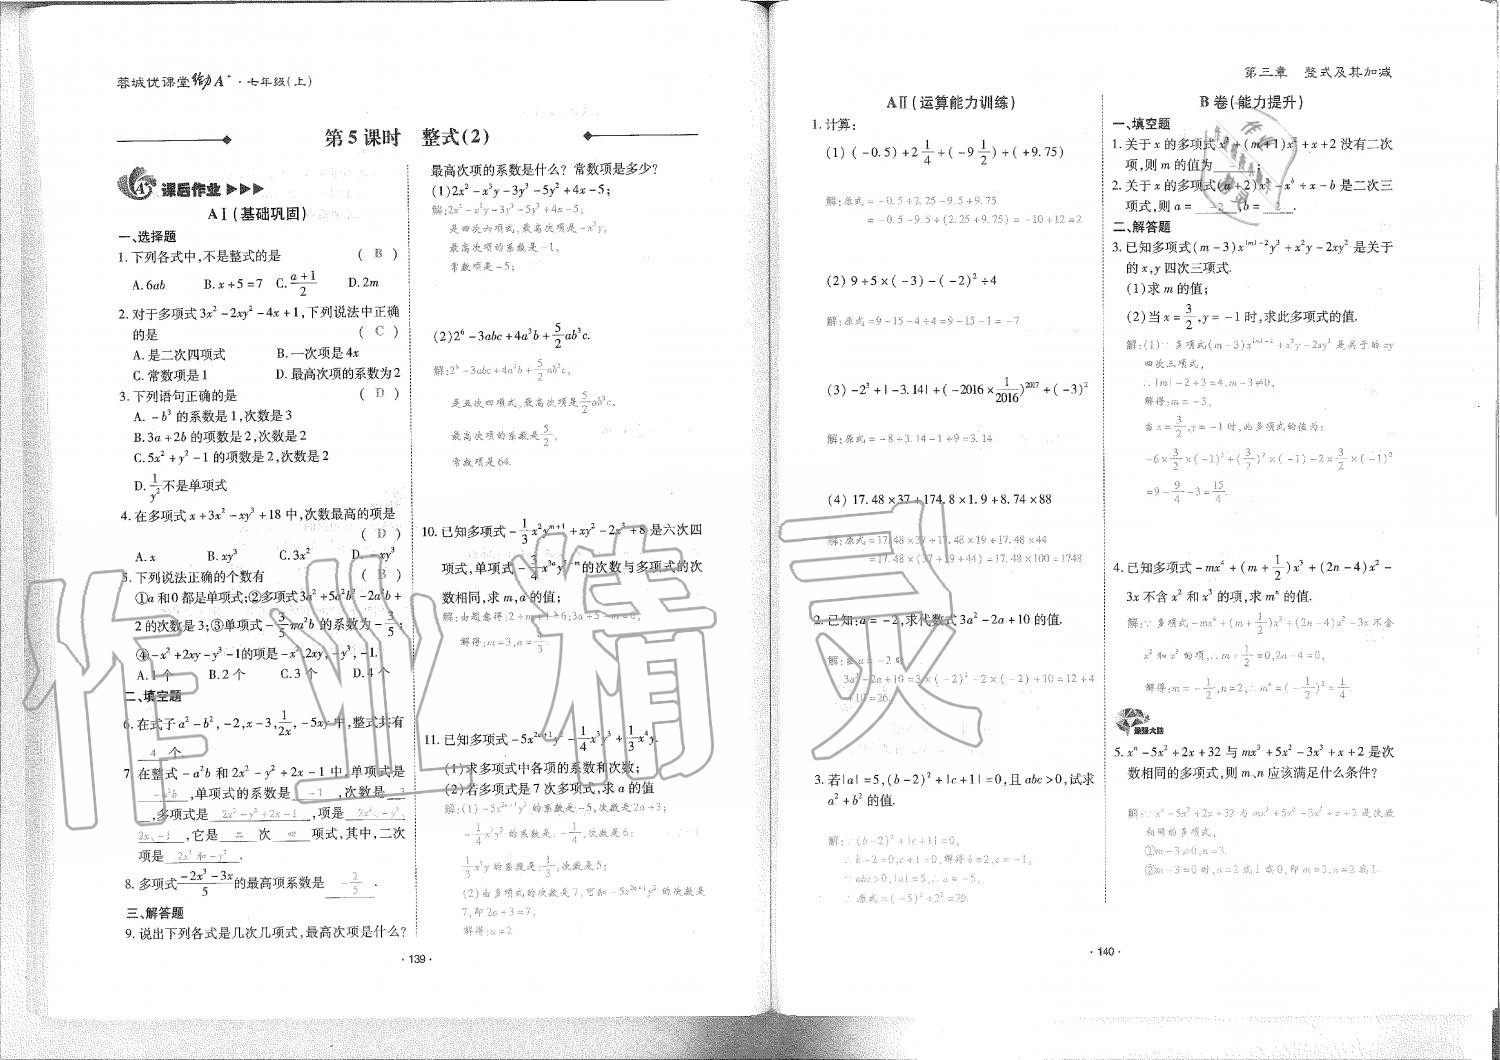 蓉城优课堂 A+·七年级(上)
第5课时 整式(2)
课后作业
AⅠ(基础巩固)
一、选择题
1.下列各式中,不是整式的是 ( B )
A.6ab B.x+5=7 C.(a+1)/2 D.2m
2.对于多项式3x²-2xy²-4x+1,下列说法中正确
的是 ( C )
A.是二次四项式 B.一次项是4x
C.常数项是1 D.最高次项的系数为2
3.下列语句正确的是 ( D )
A.-b³的系数是1,次数是3
B.3a+2b的项数是2,次数是2
C.5x²+y²-1的项数是2,次数是2
D.1/y²不是单项式
4.在多项式x+3x²-xy³+18中,次数最高的项是
( D )
A.x B.xy³ C.3x² D.-xy³
5.下列说法正确的个数有 ( B )
①a和0都是单项式;②多项式3a²+5a²b²-2ab+
2的次数是3;③单项式-3/5πa²b的系数为-3/5;
④-x²+2xy-y³-1的项是-x²,2xy,-y³,-1.
A.1个 B.2个 C.3个 D.4个
二、填空题
6.在式子a²-b²,-2,x-3,1/2x,-5xy中,整式共有
4 个
7.在整式-a²b和2x²-y²+2x-1中,单项式是
-a²b ,单项式的系数是 -1 ,次数是 3
,多项式是 2x²-y²+2x-1 ,项是 2x²、-y²、
2x、-1 ,它是 二 次 四 项式,其中,二次
项是 2x²和-y² .
8.多项式(-2x³-3x)/5的最高项系数是 -2/5 .
三、解答题
9.说出下列各式是几次几项式,最高次项是什么?
最高次项的系数是什么?常数项是多少?
(1)2x²-x³y-3y³-5y²+4x-5;
解:2x²-x³y-3y³-5y²+4x-5;
是四次六项式,最高次项是-x³y,
最高次项的系数是-1,
常数项是-5;
(2)2⁶-3abc+4a³b+5/2ab³c.
解:2⁶-3abc+4a³b+5/2ab³c,
是五次四项式,最高次项是5/2ab³c,
最高次项的系数是5/2,
常数项是64.
10.已知多项式-1/3x²yᵐ⁺¹+xy²-2x³+8是六次四
项式,单项式-3/4x³ᵃy⁵⁻ᵐ的次数与多项式的次
数相同,求m,a的值;
解:由题意得:2+m+1=6;3a+5-m=6,
解得:m=3,a=4/3.
11.已知多项式-5x²ᵃ⁺¹y²-1/4x³y³+1/3x⁴y.
(1)求多项式中各项的系数和次数;
(2)若多项式是7次多项式,求a的值
解:(1)-5x²ᵃ⁺¹y²的系数是-5,次数是2a+3;
-1/4x³y³的系数是:-1/4,次数是6;
1/3x⁴y的系数是:1/3,次数是5;
(2)由多项式的次数是7,可知-5x²ᵃ⁺¹y²的次数是
7,即2a+3=7,
解得:a=2
·139·
第三章 整式及其加减
AⅡ(运算能力训练)
1.计算:
(1)(-0.5)+2 1/4+(-9 1/2)+(+9.75)
解:原式=-0.5+2.25-9.5+9.75
=-0.5-9.5+(2.25+9.75)=-10+12=2
(2)9+5×(-3)-(-2)²÷4
解:原式=9-15-4÷4=9-15-1=-7
(3)-2³+|-3.14|+(-2016×1/2016)²⁰¹⁷+(-3)²
解:原式=-8+3.14-1+9=3.14
(4)17.48×37+174.8×1.9+8.74×88
解:原式=17.48×37+17.48×19+17.48×44
=17.48×(37+19+44)=17.48×100=1748
2.已知:a=-2,求代数式3a²-2a+10的值.
解:当a=-2时
3a²-2a+10=3×(-2)²-2×(-2)+10=12+4
+10=26.
3.若|a|=5,(b-2)²+|c+1|=0,且abc>0,试求
a²+b²的值.
解:∵(b-2)²+|c+1|=0,
∴b-2=0,c+1=0,解得b=2,c=-1,
∵abc>0,|a|=5,∴a=-5,
∴原式=(-5)²+2²=29.
B卷(能力提升)
一、填空题
1.关于x的多项式x³+(m+1)x²+x+2没有二次
项,则m的值为 ;
2.关于x的多项式(a+2)x³-xᵇ+x-b是二次三
项式,则a= -2 ,b= 2 .
二、解答题
3.已知多项式(m-3)x^(|m|-2)y³+x²y-2xy²是关于
的x,y四次三项式.
(1)求m的值;
(2)当x=3/2,y=-1时,求此多项式的值.
解:(1)∵多项式(m-3)x^(|m|-2)+x²y-2xy²是关于的xy
四次三项式,
∴|m|-2+3=4,m-3≠0,
解得:m=-3,
当x=3/2,y=-1时,此多项式的值为:
-6×3/2×(-1)³+(3/2)²×(-1)-2×3/2×(-1)²
=9-9/4-3=15/4.
4.已知多项式-mx⁴+(m+1/2)x³+(2n-4)x²-
3x不含x²和x³的项,求mⁿ的值.
解:∵多项式-mx⁴+(m+1/2)x³+(2n-4)x²-3x不含
x²和x³的项,∴m+1/2=0,2n-4=0,
解得:m=-1/2,n=2,∴mⁿ=(-1/2)²=1/4.
最强大脑
5.xⁿ-5x²+2x+32与mx³+5x²-3x³+x+2是次
数相同的多项式,则m、n应该满足什么条件?
解:∵xⁿ-5x²+2x+32与mx³+5x²-3x³+x+2是次数
相同的多项式,
①m-3≠0,n=3.
②m-3=0时,n=2或1或0,即m=3,n=2或1.
·140·
作业精灵